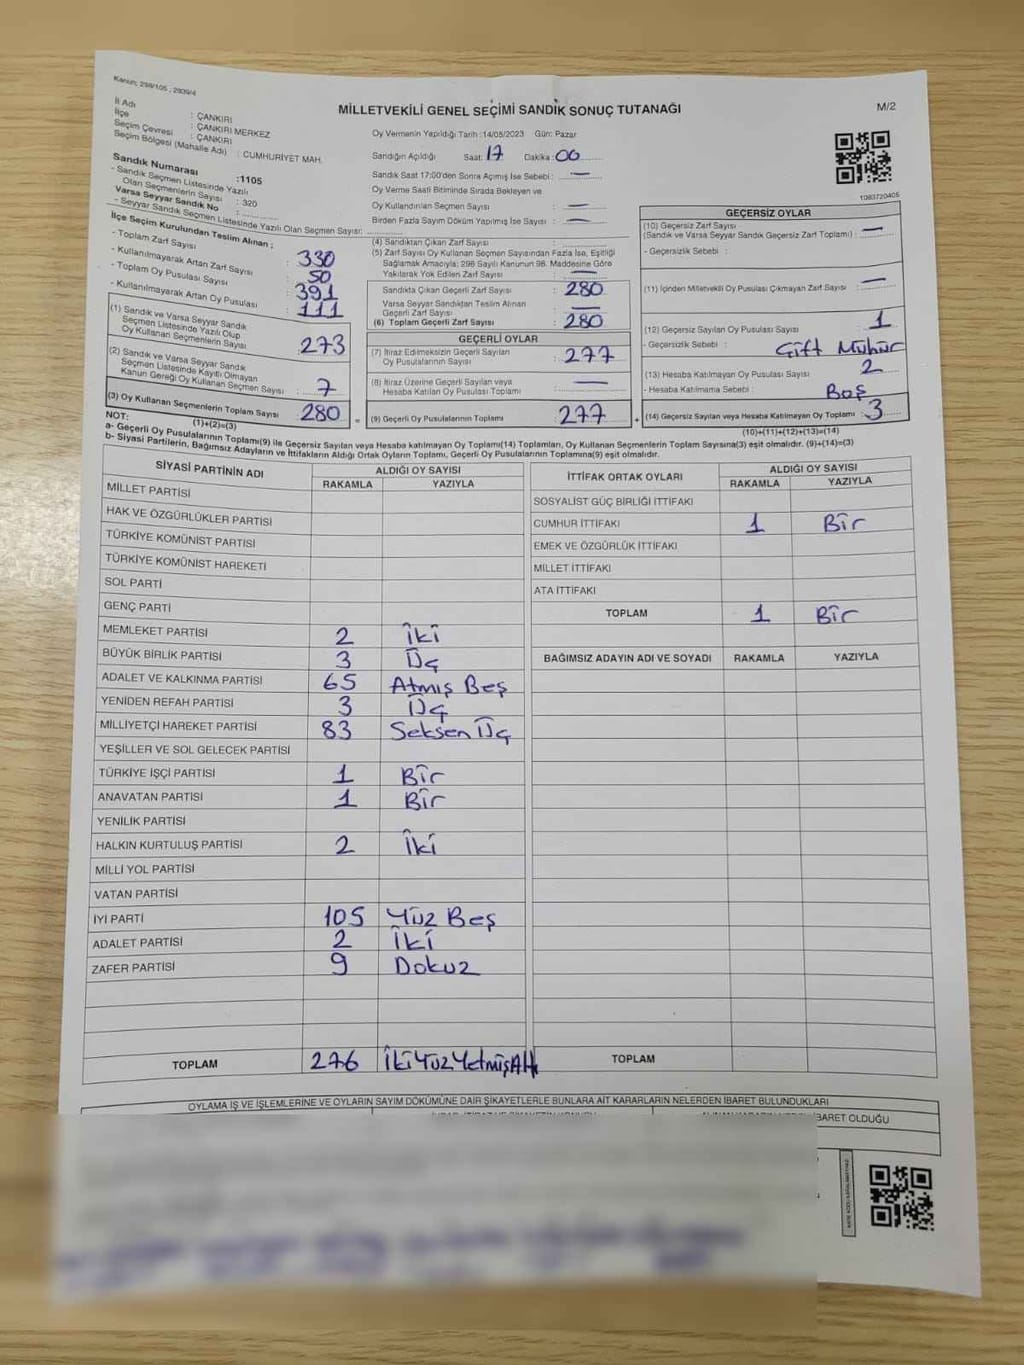 Kanun: 298/105 , 2839/4
MİLLETVEKİLİ GENEL SEÇİMİ SANDIK SONUÇ TUTANAĞI
M/2
İl Adı : ÇANKIRI
İlçe : ÇANKIRI MERKEZ
Seçim Çevresi : ÇANKIRI
Seçim Bölgesi (Mahalle Adı) : CUMHURİYET MAH.
Sandık Numarası : 1105
- Sandık Seçmen Listesinde Yazılı
Olan Seçmenlerin Sayısı : 320
Varsa Seyyar Sandık No :
- Seyyar Sandık Seçmen Listesinde Yazılı Olan Seçmen Sayısı:
Oy Vermenin Yapıldığı Tarih :14/05/2023 Gün: Pazar
Sandığın Açıldığı Saat: 17 Dakika: 00
Sandık Saat 17:00'den Sonra Açımış İse Sebebi : —
Oy Verme Saati Bitiminde Sırada Bekleyen ve
Oy Kullandırılan Seçmen Sayısı : —
Birden Fazla Sayım Döküm Yapılmış İse Sayısı : —
1083720405
İlçe Seçim Kurulundan Teslim Alınan ;
- Toplam Zarf Sayısı : 330
- Kullanılmayarak Artan Zarf Sayısı : 50
- Toplam Oy Pusulası Sayısı : 391
- Kullanılmayarak Artan Oy Pusulası : 111
(1) Sandık ve Varsa Seyyar Sandık
Seçmen Listesinde Yazılı Olup
Oy Kullanan Seçmenlerin Sayısı : 273
(2) Sandık ve Varsa Seyyar Sandık
Seçmen Listesinde Kayıtlı Olmayan
Kanun Gereği Oy Kullanan Seçmen Sayısı : 7
(3) Oy Kullanan Seçmenlerin Toplam Sayısı : 280
(1)+(2)=(3)
(4) Sandıktan Çıkan Zarf Sayısı :
(5) Zarf Sayısı Oy Kullanan Seçmen Sayısından Fazla İse, Eşitliği
Sağlamak Amacıyla; 298 Sayılı Kanunun 98. Maddesine Göre
Yakılarak Yok Edilen Zarf Sayısı : —
Sandıkta Çıkan Geçerli Zarf Sayısı : 280
Varsa Seyyar Sandıktan Teslim Alınan
Geçerli Zarf Sayısı : —
(6) Toplam Geçerli Zarf Sayısı : 280
GEÇERLİ OYLAR
(7) İtiraz Edilmeksizin Geçerli Sayılan
Oy Pusulalarının Sayısı : 277
(8) İtiraz Üzerine Geçerli Sayılan veya
Hesaba Katılan Oy Pusulası Toplamı : —
= (9) Geçerli Oy Pusulalarının Toplamı : 277
GEÇERSİZ OYLAR
(10) Geçersiz Zarf Sayısı
(Sandık ve Varsa Seyyar Sandık Geçersiz Zarf Toplamı) : —
- Geçersizlik Sebebi :
(11) İçinden Milletvekili Oy Pusulası Çıkmayan Zarf Sayısı : —
(12) Geçersiz Sayılan Oy Pusulası Sayısı : 1
- Geçersizlik Sebebi : Çift Mühür
(13) Hesaba Katılmayan Oy Pusulası Sayısı : 2
- Hesaba Katılmama Sebebi : Boş
+ (14) Geçersiz Sayılan veya Hesaba Katılmayan Oy Toplamı : 3
(10)+(11)+(12)+(13)=(14)
NOT:
a- Geçerli Oy Pusulalarının Toplamı(9) ile Geçersiz Sayılan veya Hesaba katılmayan Oy Toplamı(14) Toplamları, Oy Kullanan Seçmenlerin Toplam Sayısına(3) eşit olmalıdır. (9)+(14)=(3)
b- Siyasi Partilerin, Bağımsız Adayların ve İttifakların Aldığı Ortak Oyların Toplamı, Geçerli Oy Pusulalarının Toplamına(9) eşit olmalıdır.
SİYASİ PARTİNİN ADI ALDIĞI OY SAYISI
RAKAMLA YAZIYLA
MİLLET PARTİSİ
HAK VE ÖZGÜRLÜKLER PARTİSİ
TÜRKİYE KOMÜNİST PARTİSİ
TÜRKİYE KOMÜNİST HAREKETİ
SOL PARTİ
GENÇ PARTİ
MEMLEKET PARTİSİ 2 İki
BÜYÜK BİRLİK PARTİSİ 3 Üç
ADALET VE KALKINMA PARTİSİ 65 Atmış Beş
YENİDEN REFAH PARTİSİ 3 Üç
MİLLİYETÇİ HAREKET PARTİSİ 83 Seksen Üç
YEŞİLLER VE SOL GELECEK PARTİSİ
TÜRKİYE İŞÇİ PARTİSİ 1 Bir
ANAVATAN PARTİSİ 1 Bir
YENİLİK PARTİSİ
HALKIN KURTULUŞ PARTİSİ 2 İki
MİLLİ YOL PARTİSİ
VATAN PARTİSİ
İYİ PARTİ 105 Yüz Beş
ADALET PARTİSİ 2 İki
ZAFER PARTİSİ 9 Dokuz
TOPLAM 276 İki Yüz Yetmiş Altı
İTTİFAK ORTAK OYLARI ALDIĞI OY SAYISI
RAKAMLA YAZIYLA
SOSYALİST GÜÇ BİRLİĞİ İTTİFAKI
CUMHUR İTTİFAKI 1 Bir
EMEK VE ÖZGÜRLÜK İTTİFAKI
MİLLET İTTİFAKI
ATA İTTİFAKI
TOPLAM 1 Bir
BAĞIMSIZ ADAYIN ADI VE SOYADI RAKAMLA YAZIYLA
TOPLAM
OYLAMA İŞ VE İŞLEMLERİNE VE OYLARIN SAYIM DÖKÜMÜNE DAİR ŞİKAYETLERLE BUNLARA AİT KARARLARIN NELERDEN İBARET BULUNDUKLARI
İBARET OLDUĞU